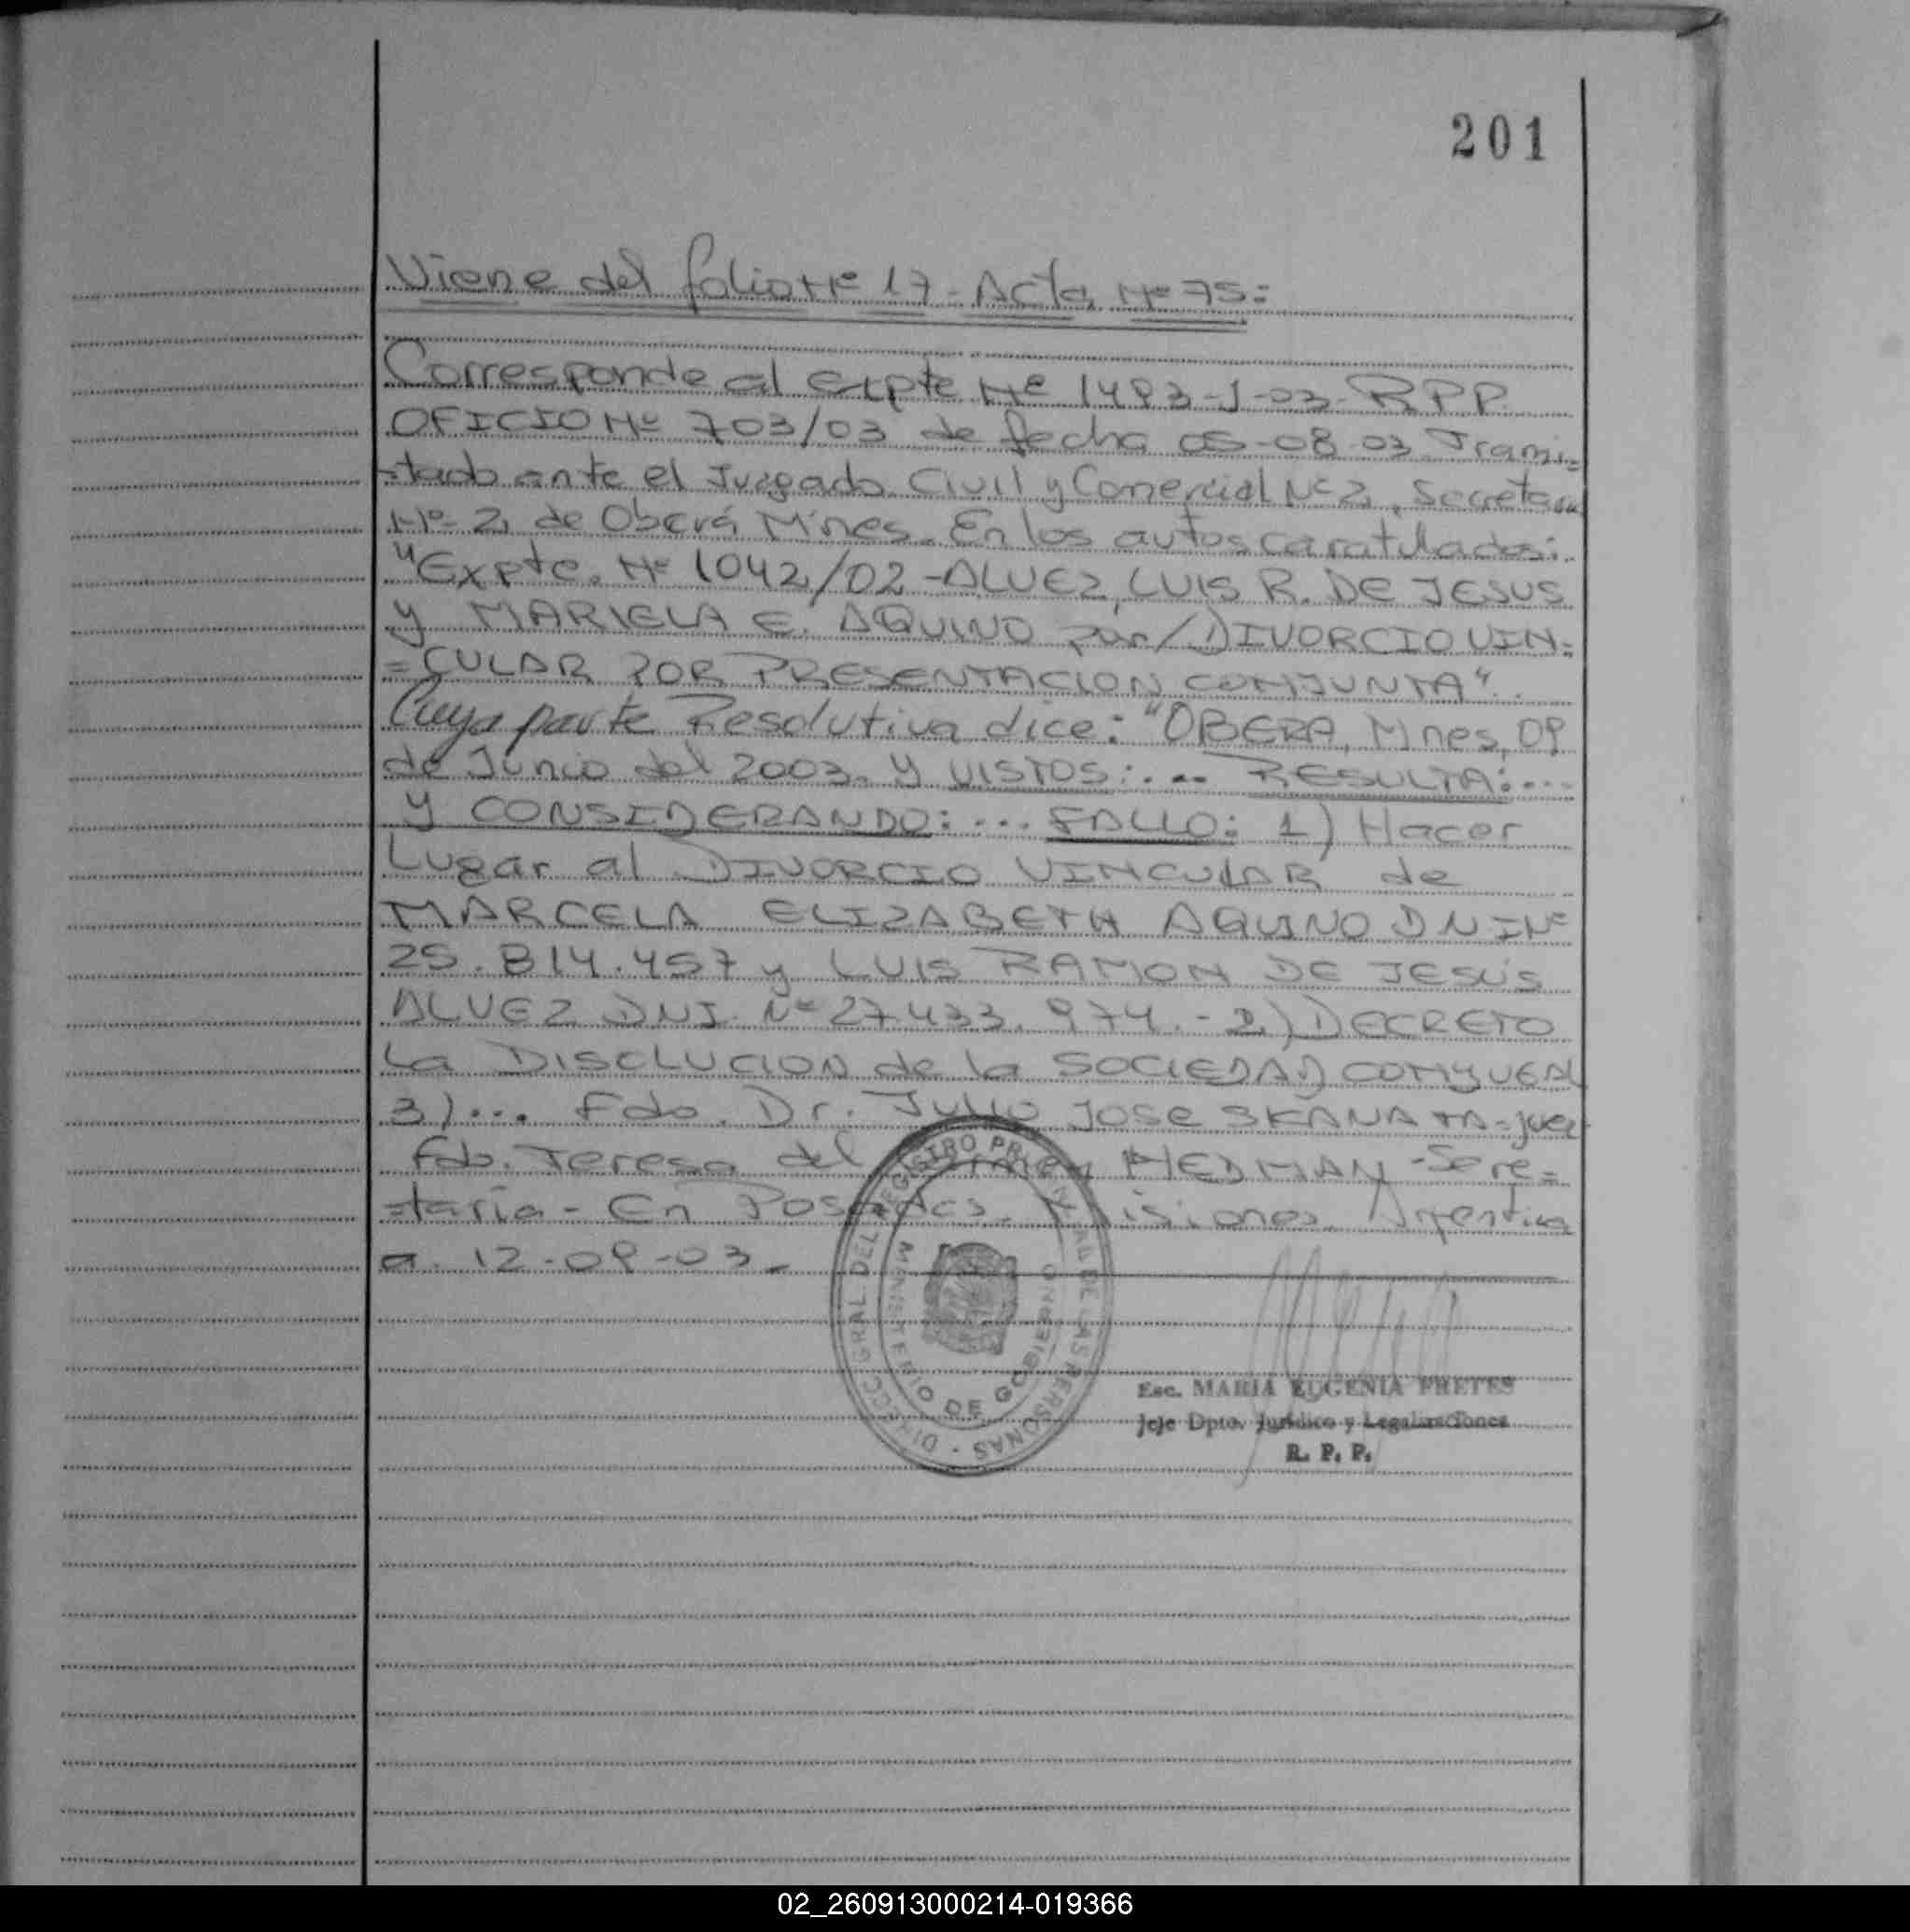 201
Viene del folio Nº 17 - Acta Nº 75:
Corresponde al Expte Nº 1493-J-03-RPP
OFICIO Nº 703/03 de fecha 05-08-03. Trami=
=tado ante el Juzgado Civil y Comercial Nº 2, Secretaria
Nº 2, de Oberá Mnes. En los autos caratulados:
"Expte. Nº 1042/02 - ALVEZ, LUIS R. DE JESUS
y MARIELA E. AQUINO por/DIVORCIO VIN=
=CULAR POR PRESENTACION CONJUNTA".
Cuya parte Resolutiva dice: "OBERA, Mnes, 09
de Junio del 2003. y VISTOS:... RESULTA:...
y CONSIDERANDO:... FALLO: 1) Hacer
Lugar al DIVORCIO VINCULAR de
MARCELA ELIZABETH AQUINO DNI Nº
25.814.457 y LUIS RAMON DE JESÚS
ALVEZ DNI. Nº 27.433.974.- 2) DECRETO
la DISOLUCION de la SOCIEDAD CONYUGAL
3)... Fdo. Dr. Julio JOSE SKANATA - juez
Fdo. Teresa del Carmen HEDMAN - Secre=
=taria - En Posadas. Misiones. Argentina
a. 12-09-03.-
DIRECC. GRAL. DEL REGISTRO PROVINCIAL DE LAS PERSONAS
MINISTERIO DE GOBIERNO
Esc. MARIA EUGENIA FRETES
Jefe Dpto. Jurídico y Legalizaciones
R. P. P.
02_260913000214-019366